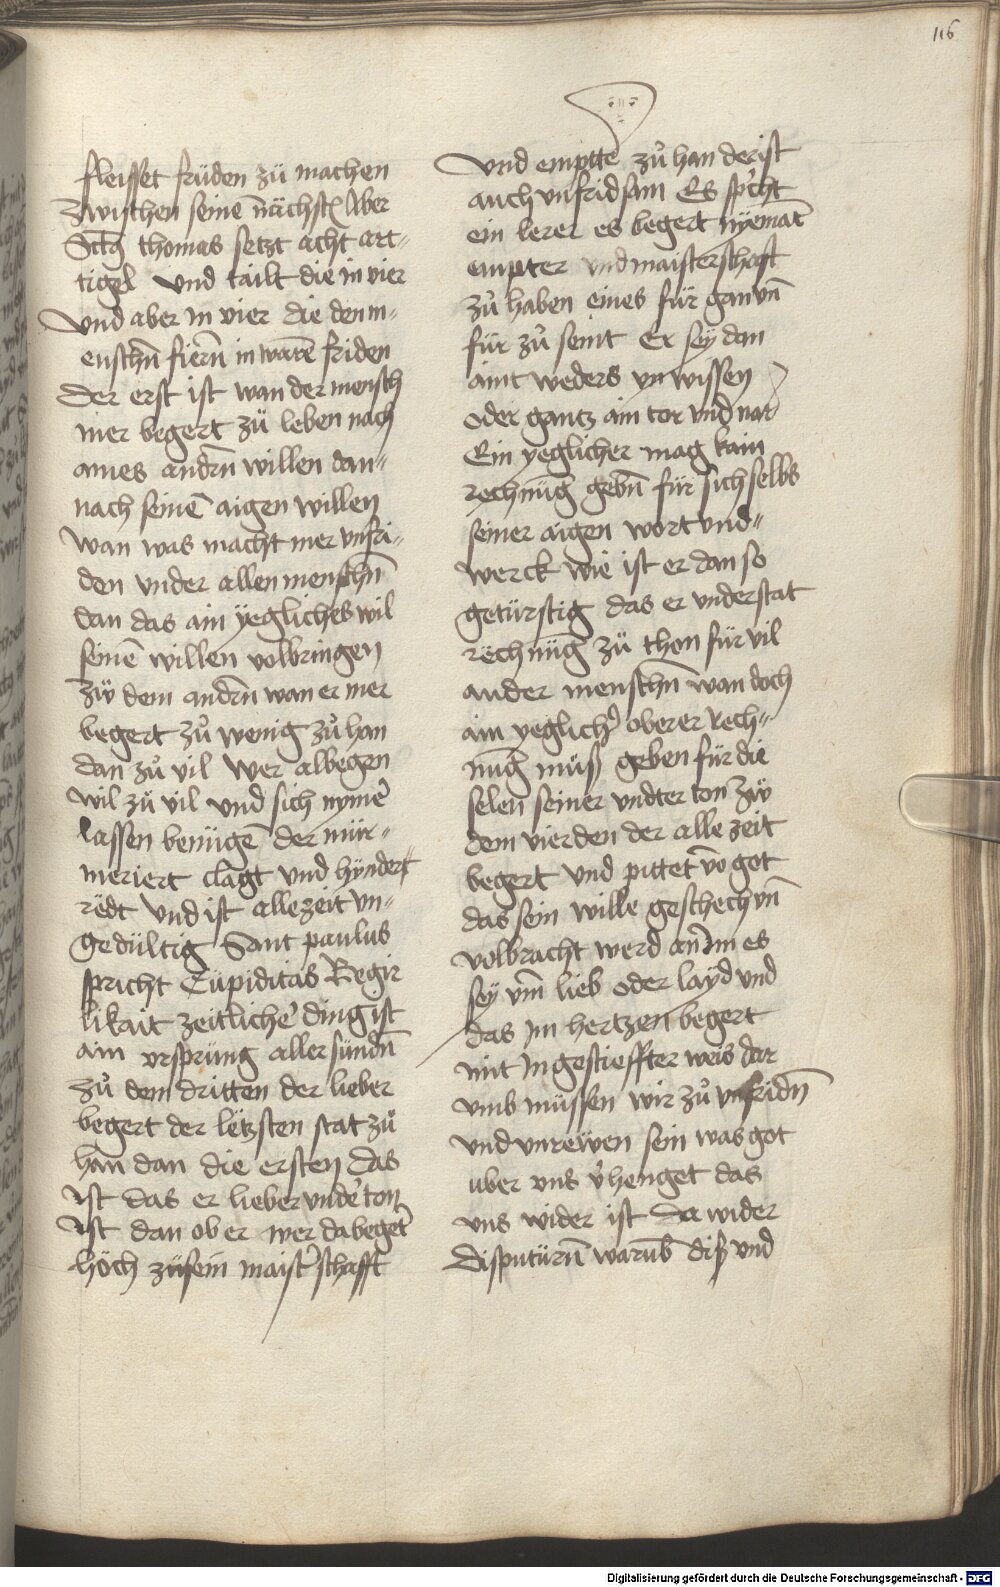 116
fleisset früden zü machen
zwischen seinē nächstē Aber
Sctg thomas setzt acht art-
tigel und tailt die in vier
und aber in vier die den m-
enschn̄ fierñ in warē friden
der erst ist wan der mensch
mer begert zü leben nach
aines andrñ willen dan-
nach seinē aigen willen
wan was macht mer unfri-
den under allen menschn̄
dan das ain yegliches wil
seinē willen volbringen
zw dem andrñ wan er mer
begert zů wenig zů han
dan zů vil wer albegen
wil zü vil und sich nymer
lassen benügē der mür-
meriert clagt und hynder
redt und ist allezeit un-
gedültig Sant paulus
spricht Cupiditas Begir
likait zeitlicher ding ist
ain ursprüng aller sündn̄
zů dem dritten der lieber
begert der letzsten stat zů
han dan die ersten das
ist das er lieber under ton
ist dan ob er wer da begert
höch zü sein maisterschafft
und emptter zů han der ist
auch unfridsam Es spricht
ein lerer es begert nyemāt
empter und maisterschaft
zů haben eines für gan uñ
für zů seint Er sey dan
aint weders un wissen
oder gantz ain tor und nar
Ein yeglicher mag kain
rechnūg gebñ für sich selbs
seiner aigen wort und-
werck wie ist er dan so
getürstig das er understat
rechnūg zü thon für vil
ander menschn̄ wan doch
ain yeglicher oberer rech-
nūg müss geben für die
selen seiner undter ton zw
dem vierden der alle zeit
begert und pittet vō got
das sein wille geschech uñ
volbracht werd an im es
sey um̄ lieb oder layd und
das im hertzen begert
mit in gestieffter weis dar
umb müssen wir zů unfridn̄
und unrewen sein was got
uber uns verhenget das
uns wider ist da wider
disputürñ warūb diß und
Digitalisierung gefördert durch die Deutsche Forschungsgemeinschaft - DFG